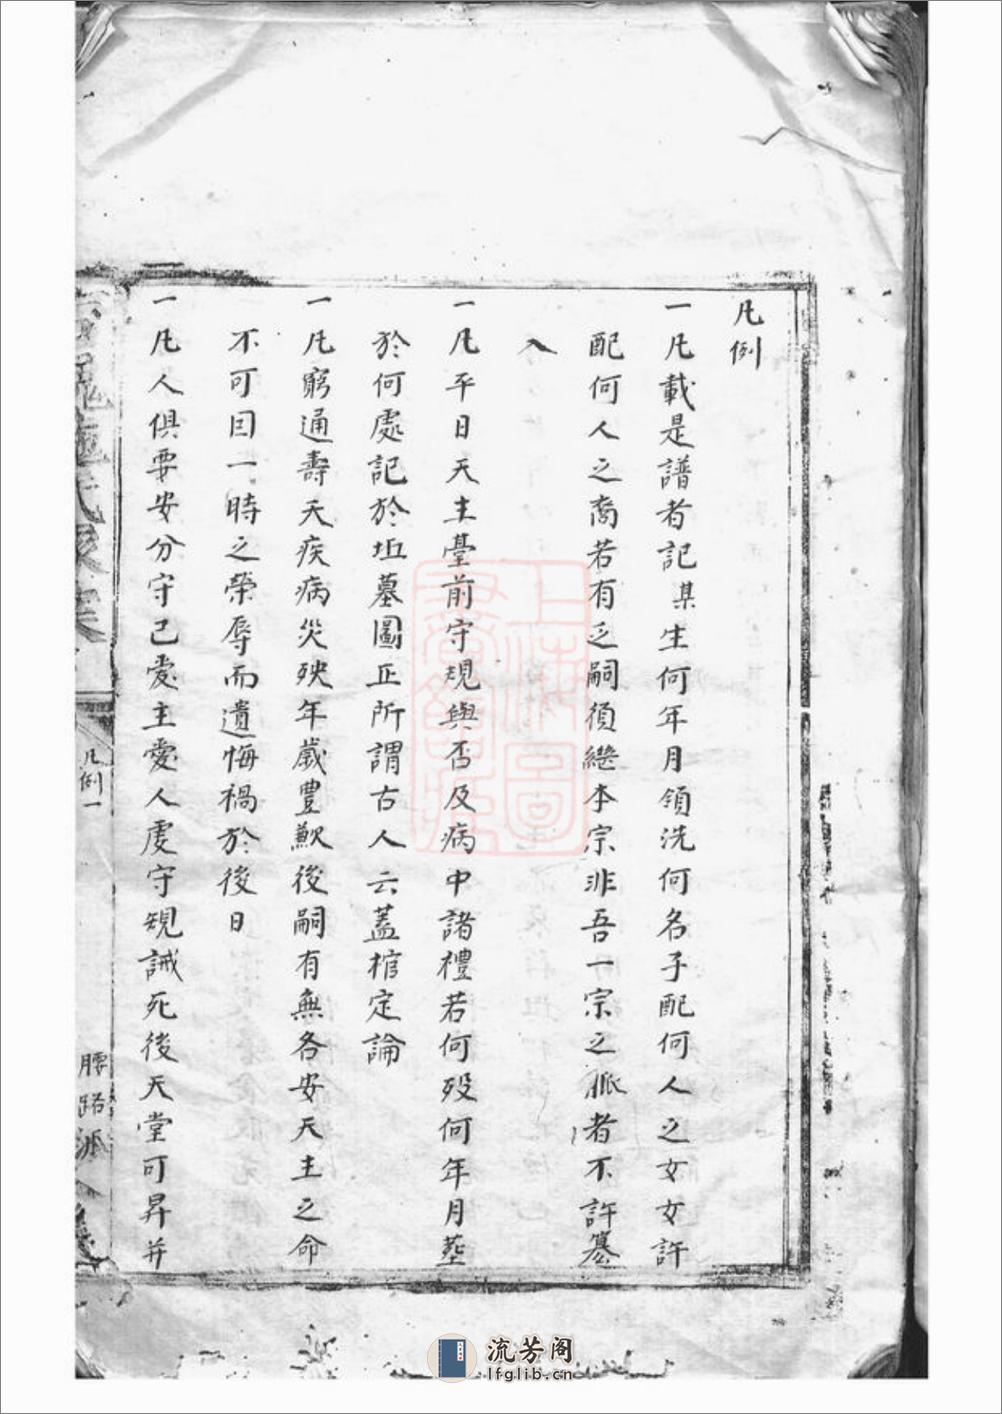 凡例
一凡載是譜者記某生何年月領洗何名子配何人之女女許
配何人之裔若有乏嗣須継本宗非吾一宗之脈者不許簒
入
一凡平日天主臺前守規與否及病中諸禮若何殁何年月塟
於何處記於坵墓圖正所謂古人云蓋棺定論
一凡窮通壽夭疾病災殃年歲豊歉後嗣有無各安天主之命
不可因一時之榮辱而遺悔禍於後日
一凡人俱要安分守己愛主愛人虔守規誡死後天堂可昇并
凡例一
腰路派
上海圖書館藏
流芳阁
lfglib.cn